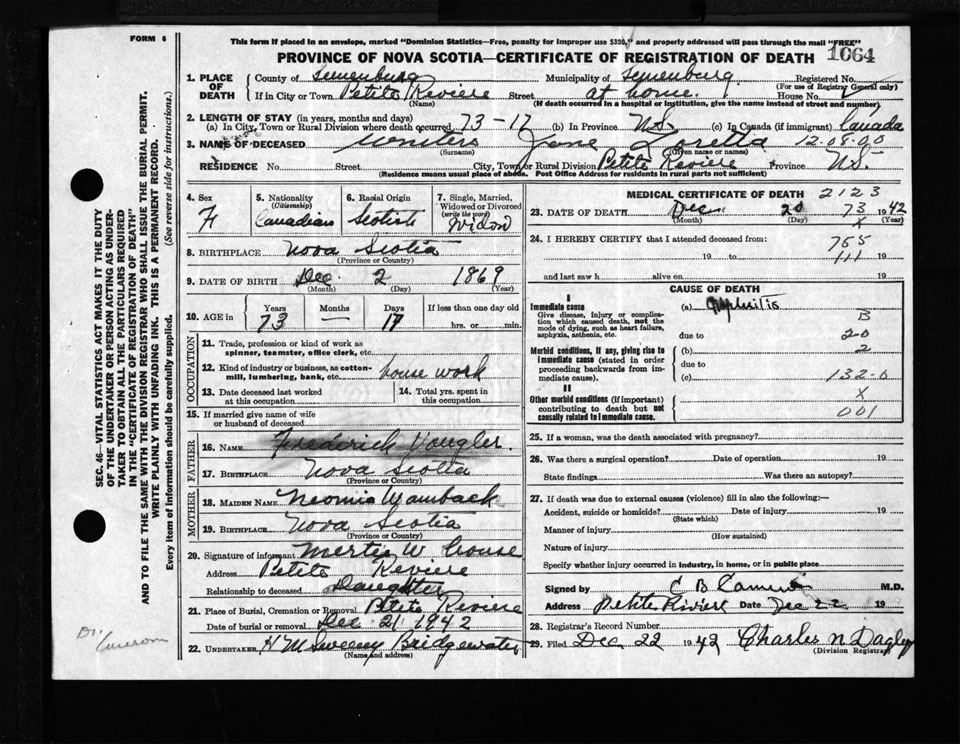 FORM 6
This form if placed in an envelope, marked "Dominion Statistics—Free, penalty for improper use $300," and properly addressed will pass through the mail "FREE"
PROVINCE OF NOVA SCOTIA—CERTIFICATE OF REGISTRATION OF DEATH
1064
1. PLACE OF DEATH County of Lunenburg Municipality of Lunenburg Registered No.
(For use of Registrar General only)
If in City or Town Petite Riviere Street at home. House No.
(Name) (If death occurred in a hospital or institution, give the name instead of street and number)
2. LENGTH OF STAY (in years, months and days)
(a) In City, Town or Rural Division where death occurred 73-17 (b) In Province N.S. (c) In Canada (if immigrant) Canada
3. NAME OF DECEASED Jane Loretta 12-09-00
(Surname) (Given name or names)
RESIDENCE No. Street City, Town or Rural Division Petite Reviere Province N.S.
(Residence means usual place of abode. Post Office Address for residents in rural parts not sufficient)
4. Sex F
5. Nationality (Citizenship) Canadian
6. Racial Origin Scotish
7. Single, Married, Widowed or Divorced (write the word) Widow
8. BIRTHPLACE Nova Scotia
(Province or Country)
9. DATE OF BIRTH Dec 2 1869
(Month) (Day) (Year)
10. AGE in Years Months Days If less than one day old
73 — 17 hrs. or min.
OCCUPATION
11. Trade, profession or kind of work as spinner, teamster, office clerk, etc.
12. Kind of industry or business, as cotton-mill, lumbering, bank, etc. house work
13. Date deceased last worked at this occupation
14. Total yrs. spent in this occupation
15. If married give name of wife or husband of deceased
FATHER
16. NAME Frederick Vougler
17. BIRTHPLACE Nova Scotia
(Province or Country)
MOTHER
18. MAIDEN NAME Neomia Wamback
19. BIRTHPLACE Nova Scotia
(Province or Country)
20. Signature of informant W Crouse
Address Petite Reviere
Relationship to deceased Daughter
21. Place of Burial, Cremation or Removal Petite Reviere
Date of burial or removal Dec 21 1942
22. UNDERTAKER H M Sweeny Bridgewater
(Name and address)
MEDICAL CERTIFICATE OF DEATH 2123
23. DATE OF DEATH Dec 20 73 1942
(Month) (Day) X (Year)
24. I HEREBY CERTIFY that I attended deceased from: 755
19 to 111 19
and last saw h alive on 19
CAUSE OF DEATH
I
Immediate cause
Give disease, injury or complication which caused death, not the mode of dying, such as heart failure, asphyxia, asthenia, etc.
(a) Nephritis
B
due to 20
Morbid conditions, if any, giving rise to immediate cause (stated in order proceeding backwards from immediate cause).
(b) 2
due to
(c) 132-0
II
Other morbid conditions (if important) contributing to death but not causally related to immediate cause.
X
001
25. If a woman, was the death associated with pregnancy?
26. Was there a surgical operation? Date of operation 19
State findings Was there an autopsy?
27. If death was due to external causes (violence) fill in also the following:—
Accident, suicide or homicide? Date of injury 19
(State which)
Manner of injury
(How sustained)
Nature of injury
Specify whether injury occurred in industry, in home, or in public place
Signed by C B Cameron M.D.
Address Petite Riviere Date Dec 22 19
28. Registrar's Record Number
29. Filed Dec 22 1942 Charles N Dagley
(Division Registrar)
SEC. 46—VITAL STATISTICS ACT MAKES IT THE DUTY
OF THE UNDERTAKER OR PERSON ACTING AS UNDER-
TAKER TO OBTAIN ALL THE PARTICULARS REQUIRED
IN THE "CERTIFICATE OF REGISTRATION OF DEATH"
AND TO FILE THE SAME WITH THE DIVISION REGISTRAR WHO SHALL ISSUE THE BURIAL PERMIT.
WRITE PLAINLY WITH UNFADING INK. THIS IS A PERMANENT RECORD.
Every item of information should be carefully supplied. (See reverse side for instructions.)
Dr. Cameron